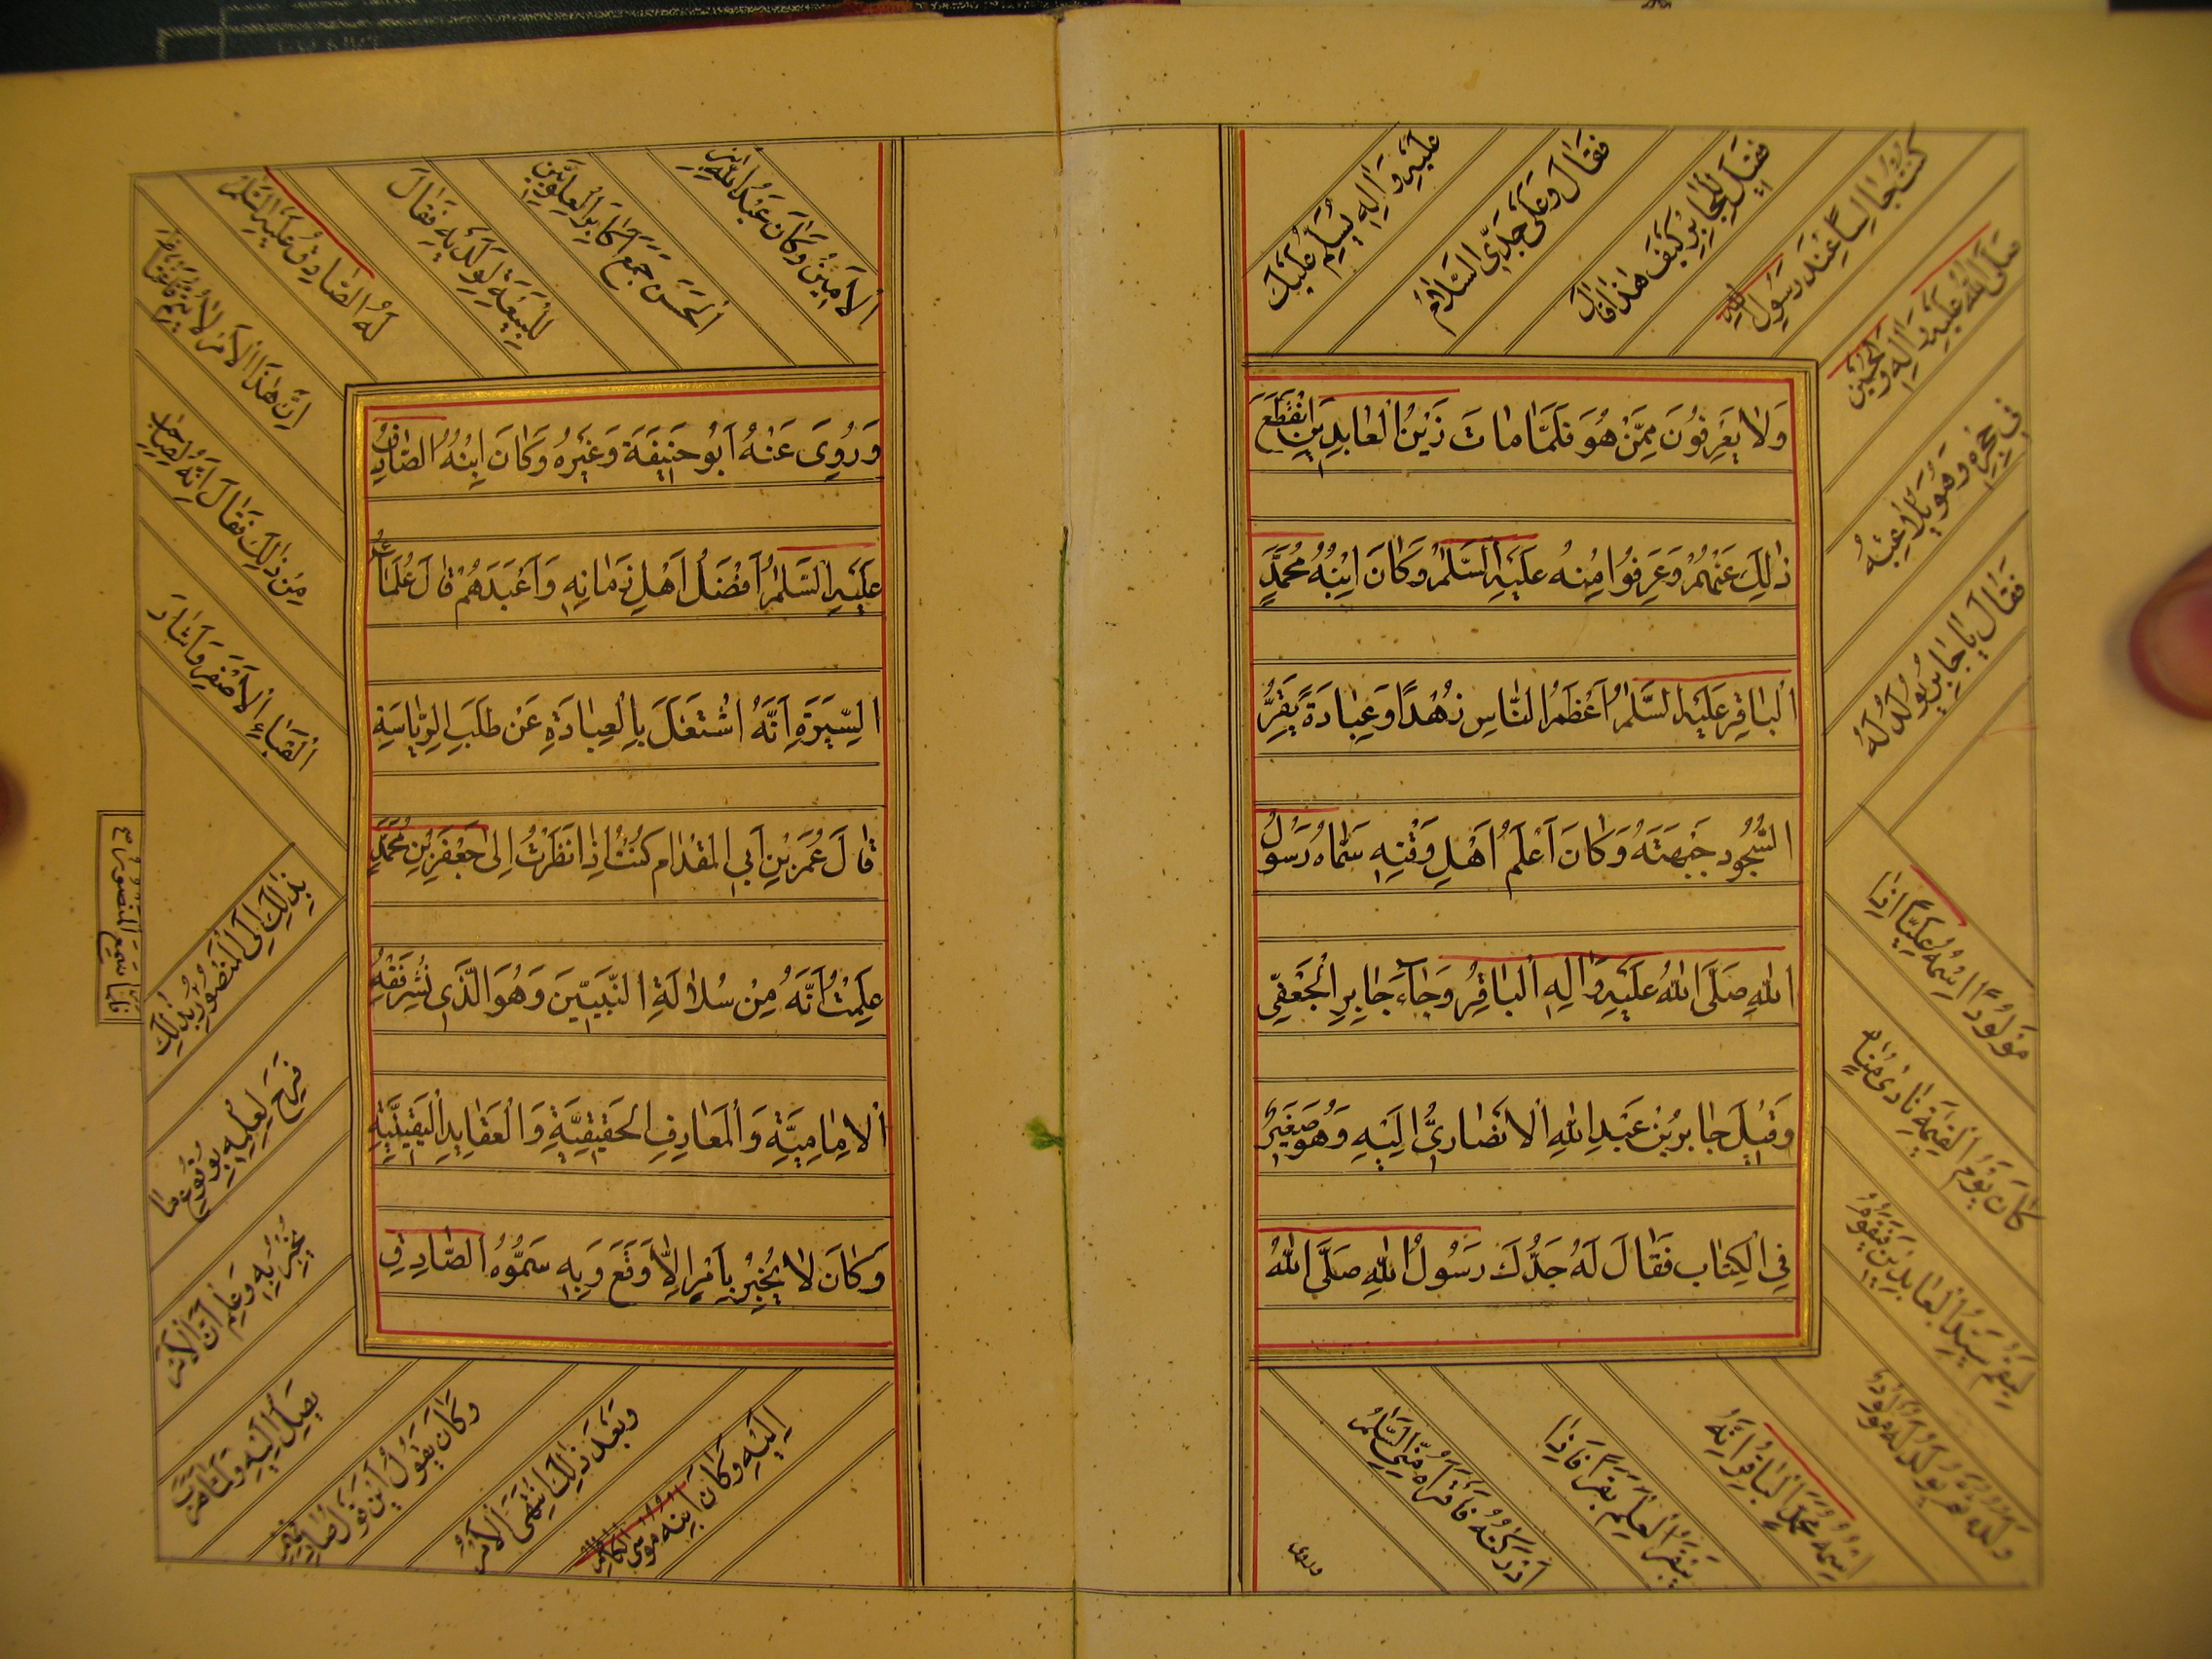 وَلَا يَعْرِفُونَ مِمَّنْ هُوَ فَلَمَّا مَاتَ زَيْنُ الْعَابِدِينَ انْقَطَعَ
ذَٰلِكَ عَنْهُمْ وَعَرِفُوا مِنْهُ عَلَيْهِ السَّلَامُ وَكَانَ ابْنُهُ مُحَمَّدٍ
الْبَاقِرِ عَلَيْهِ السَّلَامُ أَعْظَمُ النَّاسِ زُهْدًا وَعِبَادَةً بَقَرَ
السُّجُودِ جَبْهَتَهُ وَكَانَ أَعْلَمَ أَهْلِ وَقْتِهِ سَمَّاهُ رَسُولُ
اللهِ صَلَّى اللهُ عَلَيْهِ وَآلِهِ الْبَاقِرُ وَجَاءَ جَابِرِ الْجَعْفِي
وَقِيلَ جَابِرُ بْنُ عَبْدِ اللهِ الْأَنْصَارِيُّ إِلَيْهِ وَهُوَ صَغِيرٌ
فِي الْكِتَابِ فَقَالَ لَهُ جَدُّكَ رَسُولُ اللهِ صَلَّى اللهُ
عَلَيْهِ وَآلِهِ يُسَلِّمُ عَلَيْكَ
فَقَالَ وَعَلَى جَدِّي السَّلَامُ
فَقِيلَ لِجَابِرٍ كَيْفَ هَذَا قَالَ
كُنْتُ جَالِسًا عِنْدَ رَسُولِ اللهِ
صَلَّى اللهُ عَلَيْهِ وَآلِهِ وَالْحُسَيْنُ
فِي حِجْرِهِ وَهُوَ يُلَاعِبُهُ
فَقَالَ يَا جَابِرُ يُولَدُ لَهُ
مَوْلُودٌ اسْمُهُ عَلِيًّا إِذَا
كَانَ يَوْمُ الْقِيمَةِ نَادَى مُنَادٍ
لِيَقُمْ سَيِّدُ الْعَابِدِينَ فَيَقُومُ
وَلَدُهُ ثُمَّ يُولَدُ لَهُ مَوْلُودٌ
اسْمُهُ مُحَمَّدٌ الْبَاقِرُ إِنَّهُ
يَبْقَرُ الْعِلْمَ بَقْرًا فَإِذَا
أَدْرَكْتَهُ فَاقْرَأْهُ مِنِّي السَّلَامُ
وروى
وَرُوِيَ عَنْهُ أَبُو حَنِيفَةَ وَغَيْرُهُ وَكَانَ ابْنُهُ الصَّادِقُ
عَلَيْهِ السَّلَامُ أَفْضَلُ أَهْلِ زَمَانِهِ وَأَعْبَدَهُمْ قَالَ عُلَمَاءُ
السِّيرَةِ أَنَّهُ اشْتَغَلَ بِالْعِبَادَةِ عَنْ طَلَبِ الرِّيَاسَةِ
قَالَ عُمَرُ بْنِ أَبِي الْمِقْدَامِ كُنْتُ إِذَا نَظَرْتُ إِلَى جَعْفَرِ بْنِ مُحَمَّدٍ
عَلِمْتُ أَنَّهُ مِنْ سُلَالَةِ النَّبِيِّينَ وَهُوَ الَّذِي نُشِرَ فِقْهُ
الْإِمَامِيَّةِ وَالْمَعَارِفِ الْحَقِيقِيَّةِ وَالْعَقَايِدِ الْيَقِينِيَّةِ
وَكَانَ لَا يُخْبِرُ بِأَمْرٍ إِلَّا وَقَعَ وَبِهِ سَمُّوهُ الصَّادِقِ
الْأَمِينُ وَكَانَ عَبْدُ اللهِ بْنِ
الْحَسَنِ جَمَعَ أَكَابِرَ الْعَلَوِيِّينَ
لِلْبَيْعَةِ لِوَلَدَيْهِ فَقَالَ
لَهُ الصَّادِقُ عَلَيْهِ السَّلَامُ
إِنَّ هَذَا الْأَمْرَ لَا يَتِمُّ فَاغْتَاظَ
مِنْ ذَلِكَ فَقَالَ إِنَّهُ لِصَاحِبِ
الْقَبَاءِ الْأَصْفَرِ وَأَشَارَ
بِذَلِكَ إِلَى الْمَنْصُورِ
فَلَمَّا سَمِعَ الْمَنْصُورُ
بِذَلِكَ
فَرِحَ لِعِلْمِهِ بِوُقُوعِ مَا
يُخْبِرُ بِهِ وَعَلِمَ أَنَّ الْأَمْرَ
يَصِلُ إِلَيْهِ وَلَمَّا هَرَبَ
وَكَانَ يَقُولُ أَيْنَ قَوْلُ صَادِقِهِمْ
وَبَعْدَ ذَلِكَ انْتَهَى الْأَمْرُ
إِلَيْهِ وَكَانَ ابْنُهُ مُوسَى الْكَاظِمُ